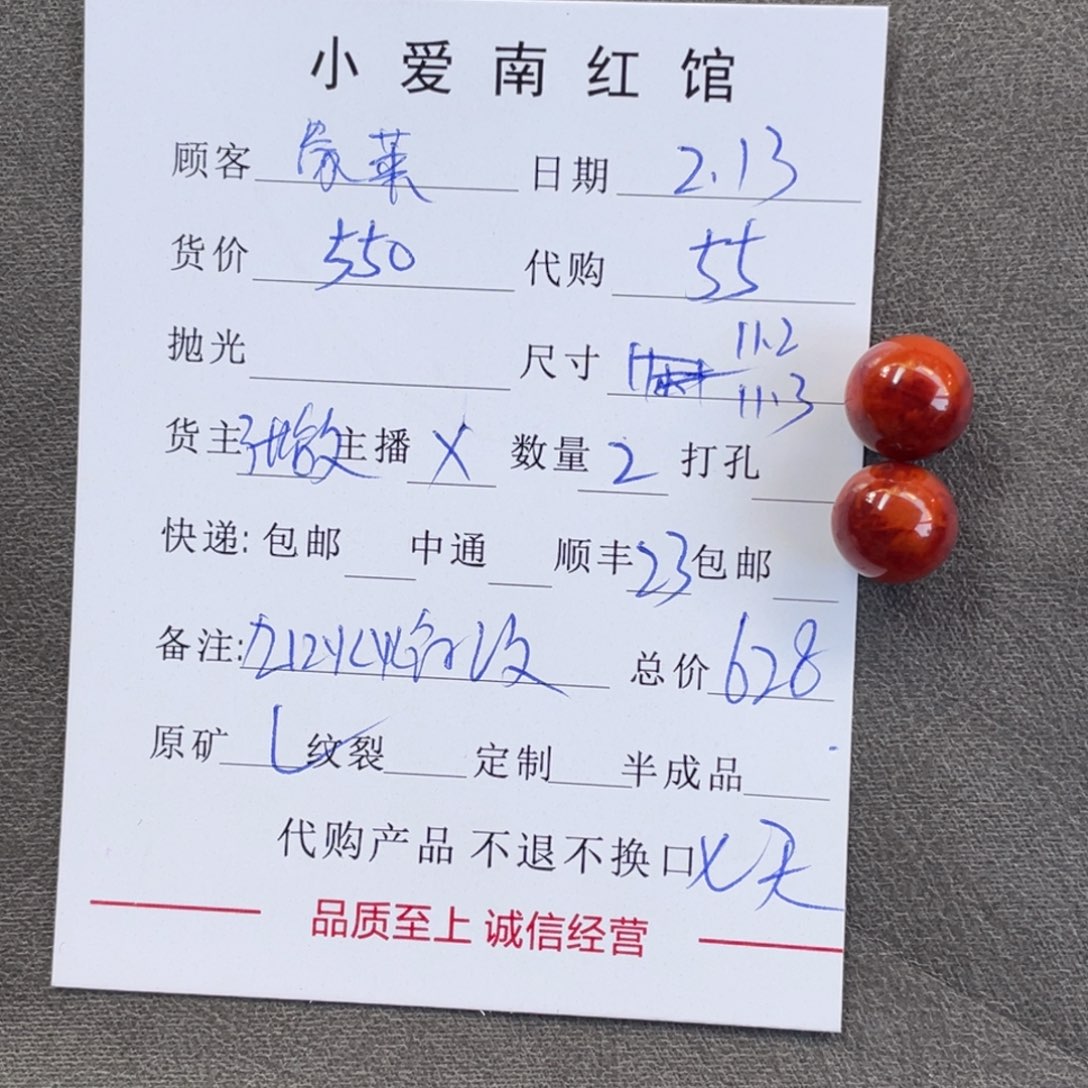 小爱南红馆
顾客 日期 2.13
货价 550 代购 55
抛光 尺寸 11.2
11.3
货主 主播 X 数量 2 打孔
快递: 包邮 中通 顺丰 23 包邮
备注: 总价 628
原矿 纹裂 定制 半成品
代购产品 不退不换口
品质至上 诚信经营